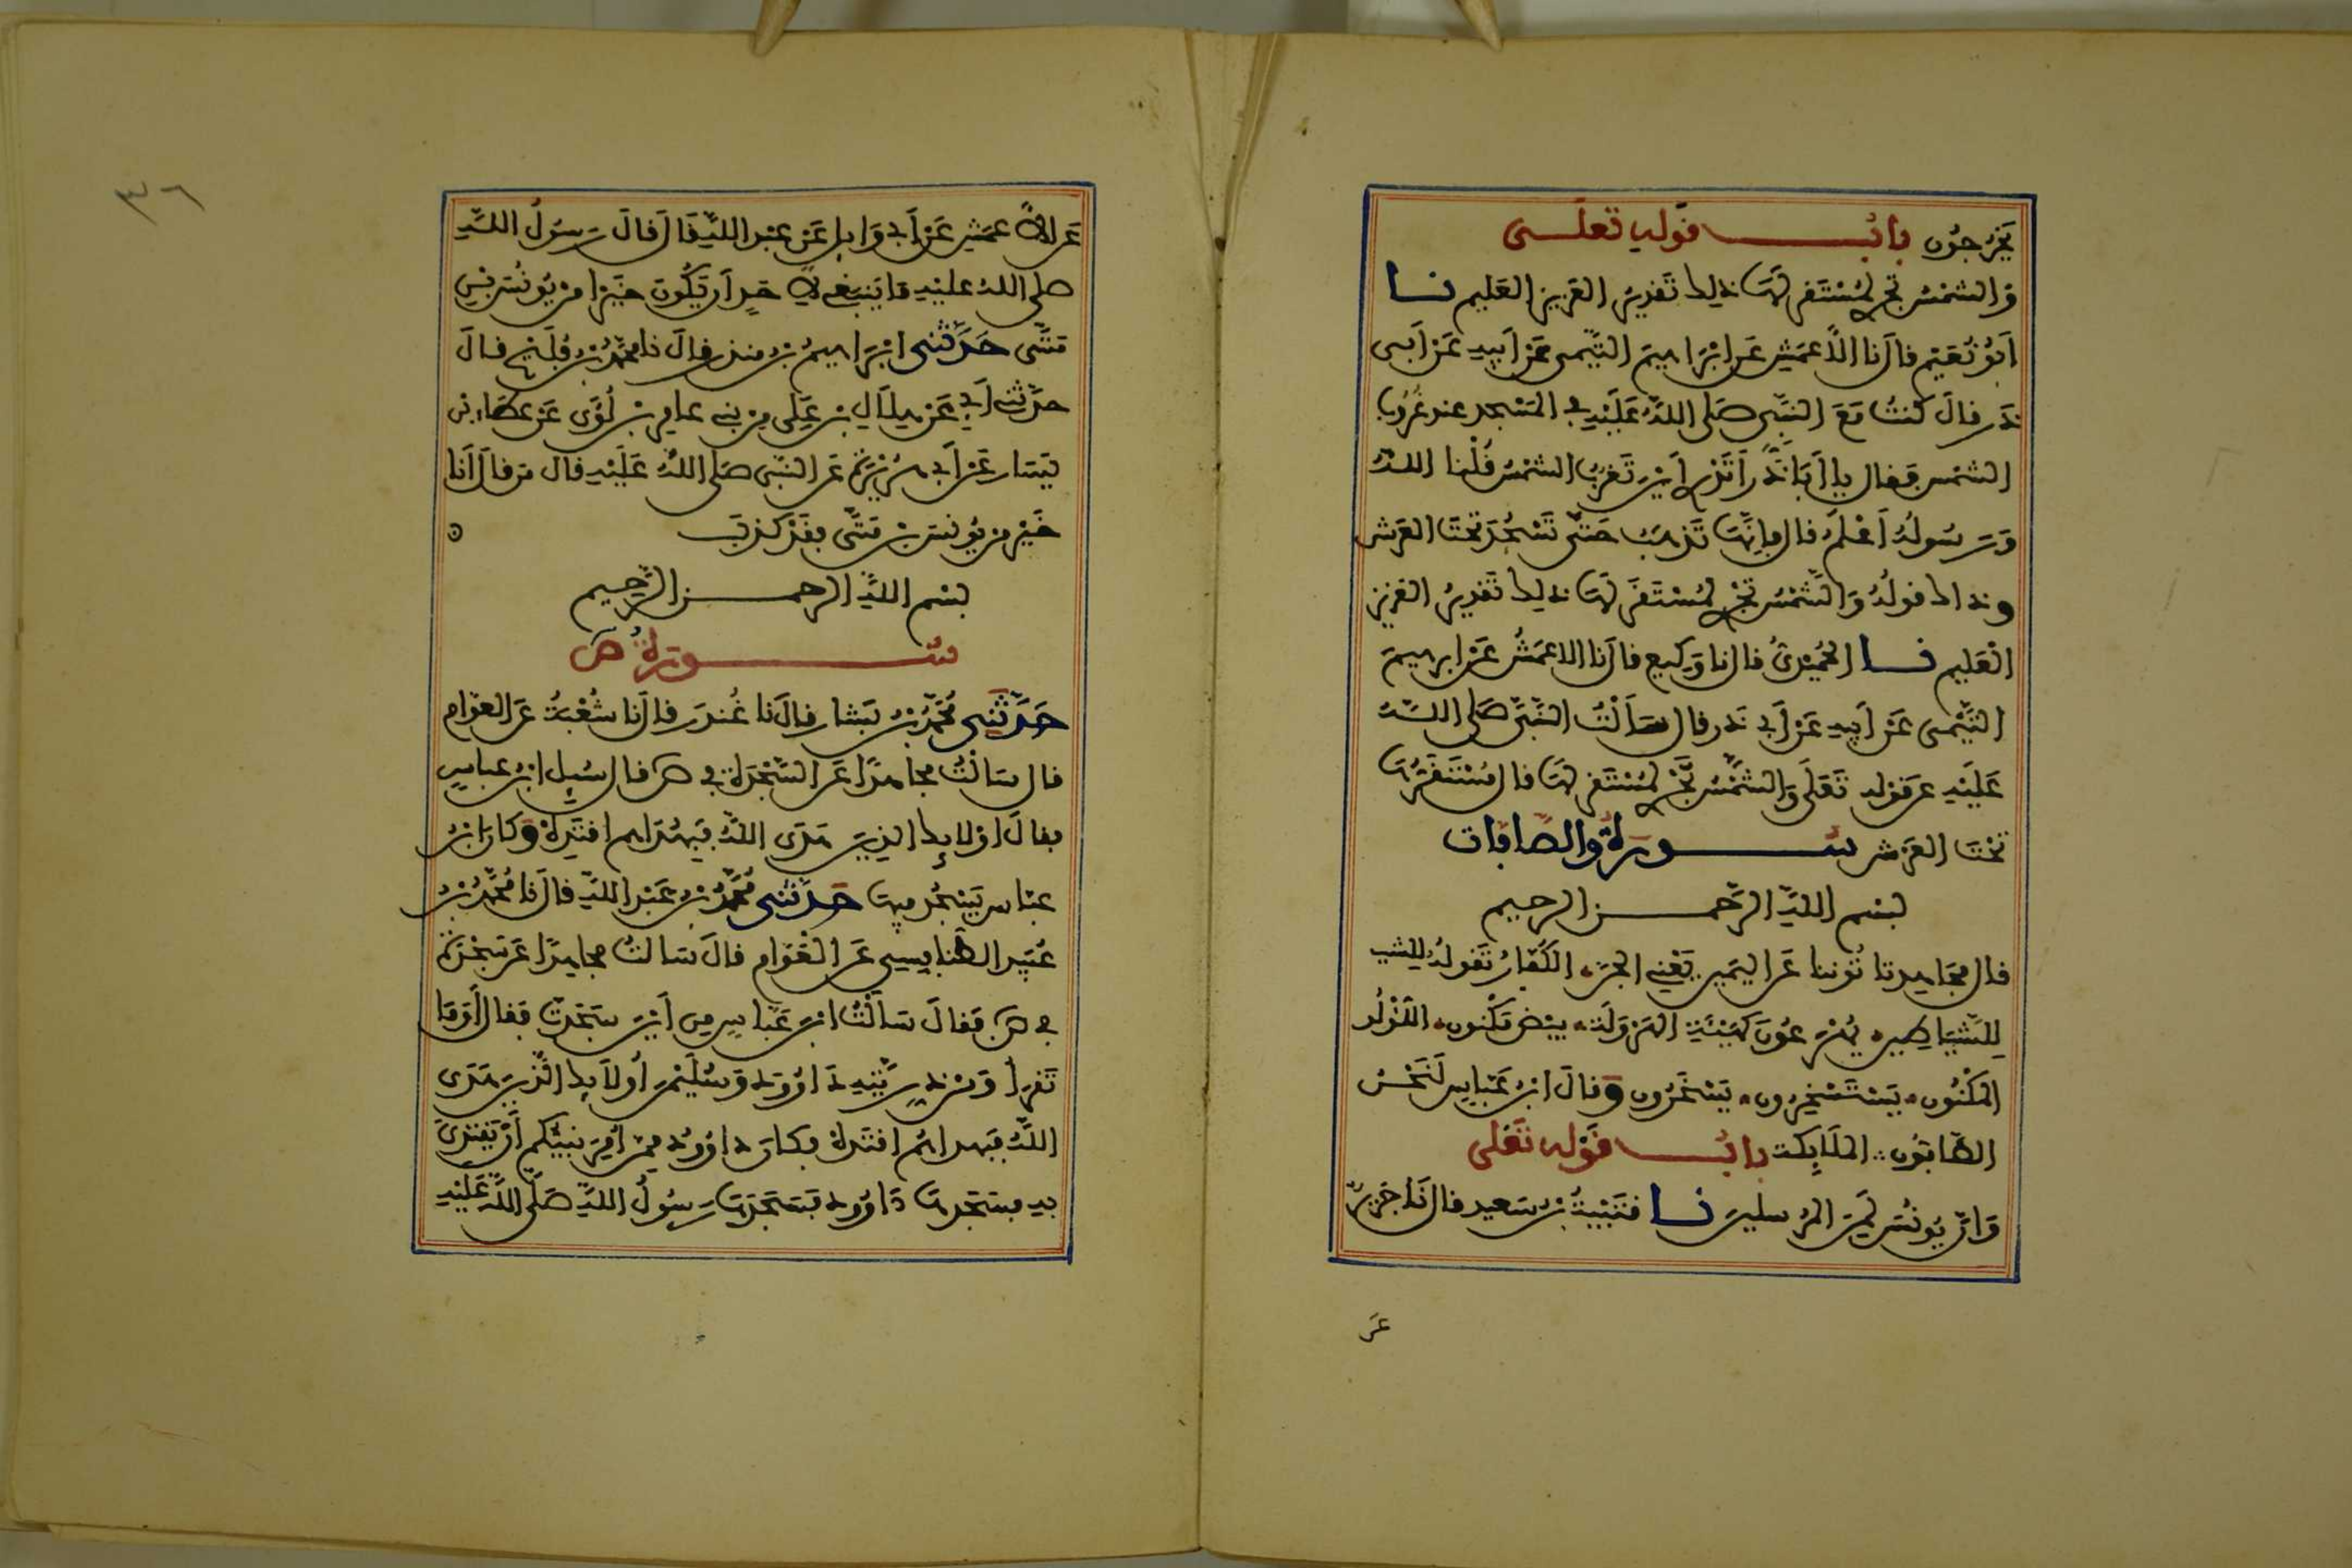 يَخْرُجُون بابُ قَولِهِ تعلى
وَالشمْسُ تجرِ لِمُسْتَقر لهَا ذلِكَ تَقدِيرُ العَزيزِ العَليم نا
أبُو نُعَيْم قالَ نا الأعمَشِ عَن إبْرَاهِيمَ التَّيمى عَن أبيهِ عَن أبى
ذَر قالَ كنتُ مَعَ النبِّى صَلى اللهُ عَلَيْهِ فى المَسْجد عند غرُوب
الشمْس فَقال يا أبَا ذَرّ أتَدْرِى أيْنَ تَغربُ الشمسُ قُلْنا اللهُ
وَرَسُولُهُ أعْلَمُ قال فإنّهَا تَذهَبُ حَتى تَسْجُدَ تحتَ العَرش
وذالك قولُهُ وَالشَّمْسُ تجْرِ لِمُسْتَقَر لهَا ذلِكَ تَقدِيرُ العَزيز
الْعَليم نا الحُمَيْدىُّ قال نا وَكِيع قالَ نا الاعمَشُ عَن ابرهيمَ
التَّيْمى عَن أبيهِ عَن أبى ذر قال سَألتُ النَّبىَّ صَلى اللهُ
عَلَيْهِ عن قَولِهِ تَعَلَى وَالشَّمْسُ تجْرِ لِمُسْتَقر لهَا قال مُسْتَقَرُّهَا
تحْتَ العَرْش سُورَةُ وَالصافات
بسم اللهِ الرَّحمن الرحيم
قال مجَاهِد تاتُوننا عَن اليَمِين يَعْنِى الجنّ الكُفَّارُ تَقولُهُ للشيـ
لِلشَّيَاطِين يُهْرَعُونَ كَهَيْئَةِ الهَرْوَلَة بيْض مَكْنون اللؤلُو
المكْنُون يَسْتَسْخِرُون يَسْخَرُون وقالَ ابنُ عَبّاس لَنَحْنُ
الصّافّون الملَايِكَة بابُ قَوْله تَعَلى
وَانّ يُونُسَ لمِنَ المُرْسلينَ نا قتَيْبَةُ بنُ سَعيد قالَ نَا جَرير
عن
٣٦
عَن الأعمَشِ عَن أبى وَايل عَن عَبْد اللهِ قَالَ قالَ رَسُولُ اللهِ
صلى اللهُ عليْهِ مَا يَنبَغِى لأحَدٍ أن يَكُونَ خَيرًا من يُونُسَ بْنِ
مَتَّى حَدَّثنى إبْرَاهيمُ بنُ منذر قالَ نا محمّدُ بنُ فُلَيْح قالَ
حدَّثنى أبى عَن هِلَال بنِ عَلِى مِن بنى عامِر بن لُؤَى عَن عطَاء بن
يَسَار عَن أبى هُرَيْرَة عَن النبّى صَلى اللهُ عَلَيْهِ قال مَن قالَ أنَا
خَيْر من يُونسَ بن مَتَّى فقَدْ كذبَ
بسم اللهِ الرحمن الرَّحِيم
سُورَةُ ص
حَدَّثَنِى مُحَمَّدُ بنُ بَشار قالَ نا غُندَر قالَ نا شُعْبَةُ عَن العَوَّام
قال سَالْتُ مجاهِدًا عَن السَّجْدَة فى ص قال سُيِل ابنُ عباسٍ
فقالَ اوْلايك الذِين هَدَى اللهُ فَبهُدَاهم اقتَدِهْ وَكانَ ابنُ
عبّاس يَسْجُد فِيهَا حَدَّثنى مُحَمَّدُ بنُ عَبْد اللهِ قالَ نا مُحَمَّدُ بنُ
عُبَيْد الطنافِسِى عَن الْعَوَّام قالَ سَالتُ مجاهِدًا عَن سَجْدَة
فى ص فَقالَ سَألْتُ ابنَ عَبّاسٍ مِن أيْنَ سَجَدتَ فَقال أوَمَا
تَقرَأ وَمِن ذُرِّيَّتِهِ دَاوُودَ وَسُلَيْمَن أولَايك الَّذِينَ هَدَى
اللهُ فَبِهداهُم اقتَدِهْ فكانَ دَاوُودُ مِمّن أمِرَ نَبِيُّكُم أنْ يَقتدِىَ
بهِ فسَجَدهَا دَاوُود فَسَجَدَهَا رَسُولُ اللهِ صَلَّى اللهُ عَلَيْهِ